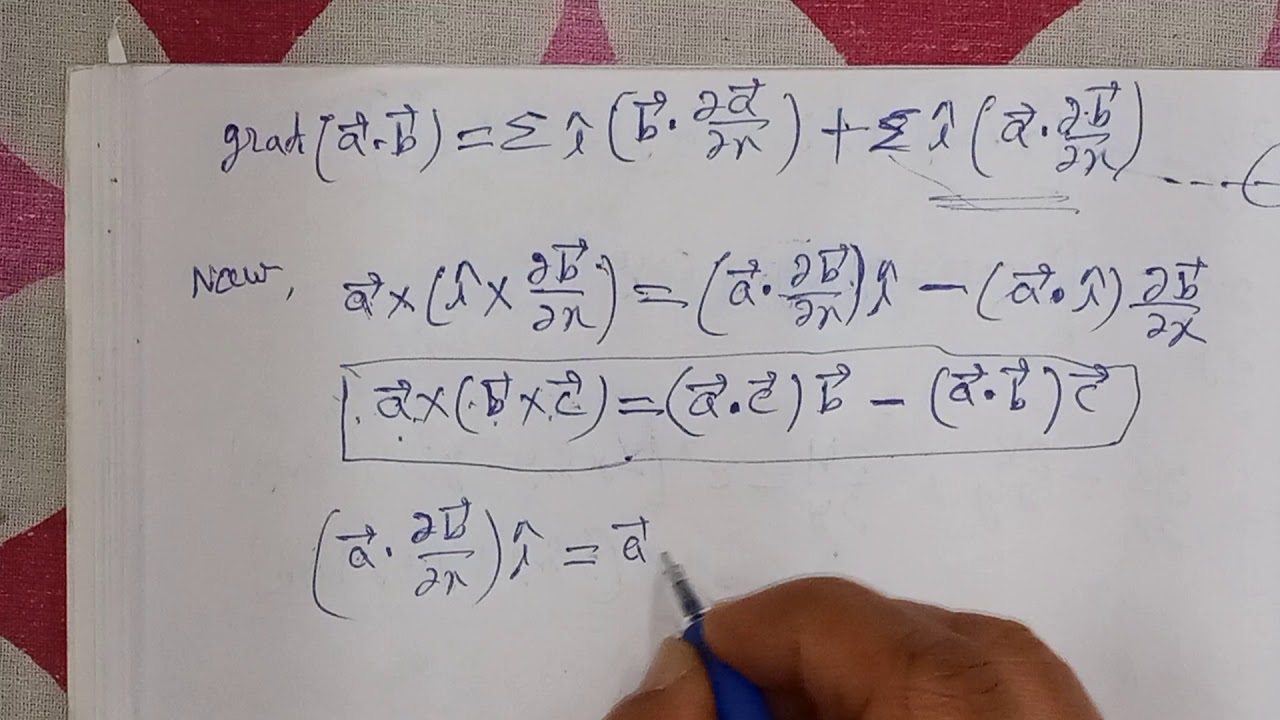 grad(a⃗·b⃗) = Σ î (b⃗·∂a⃗/∂x) + Σ î (a⃗·∂b⃗/∂x) ---
Now, a⃗×(î×∂b⃗/∂x) = (a⃗·∂b⃗/∂x)î − (a⃗·î)∂b⃗/∂x
a⃗×(b⃗×c⃗) = (a⃗·c⃗)b⃗ − (a⃗·b⃗)c⃗
(a⃗·∂b⃗/∂x)î = a⃗